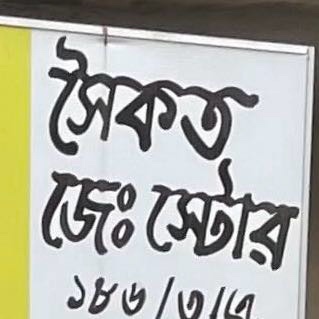 সৈকত
জেঃ স্টোর
১৮৬/৩/এ